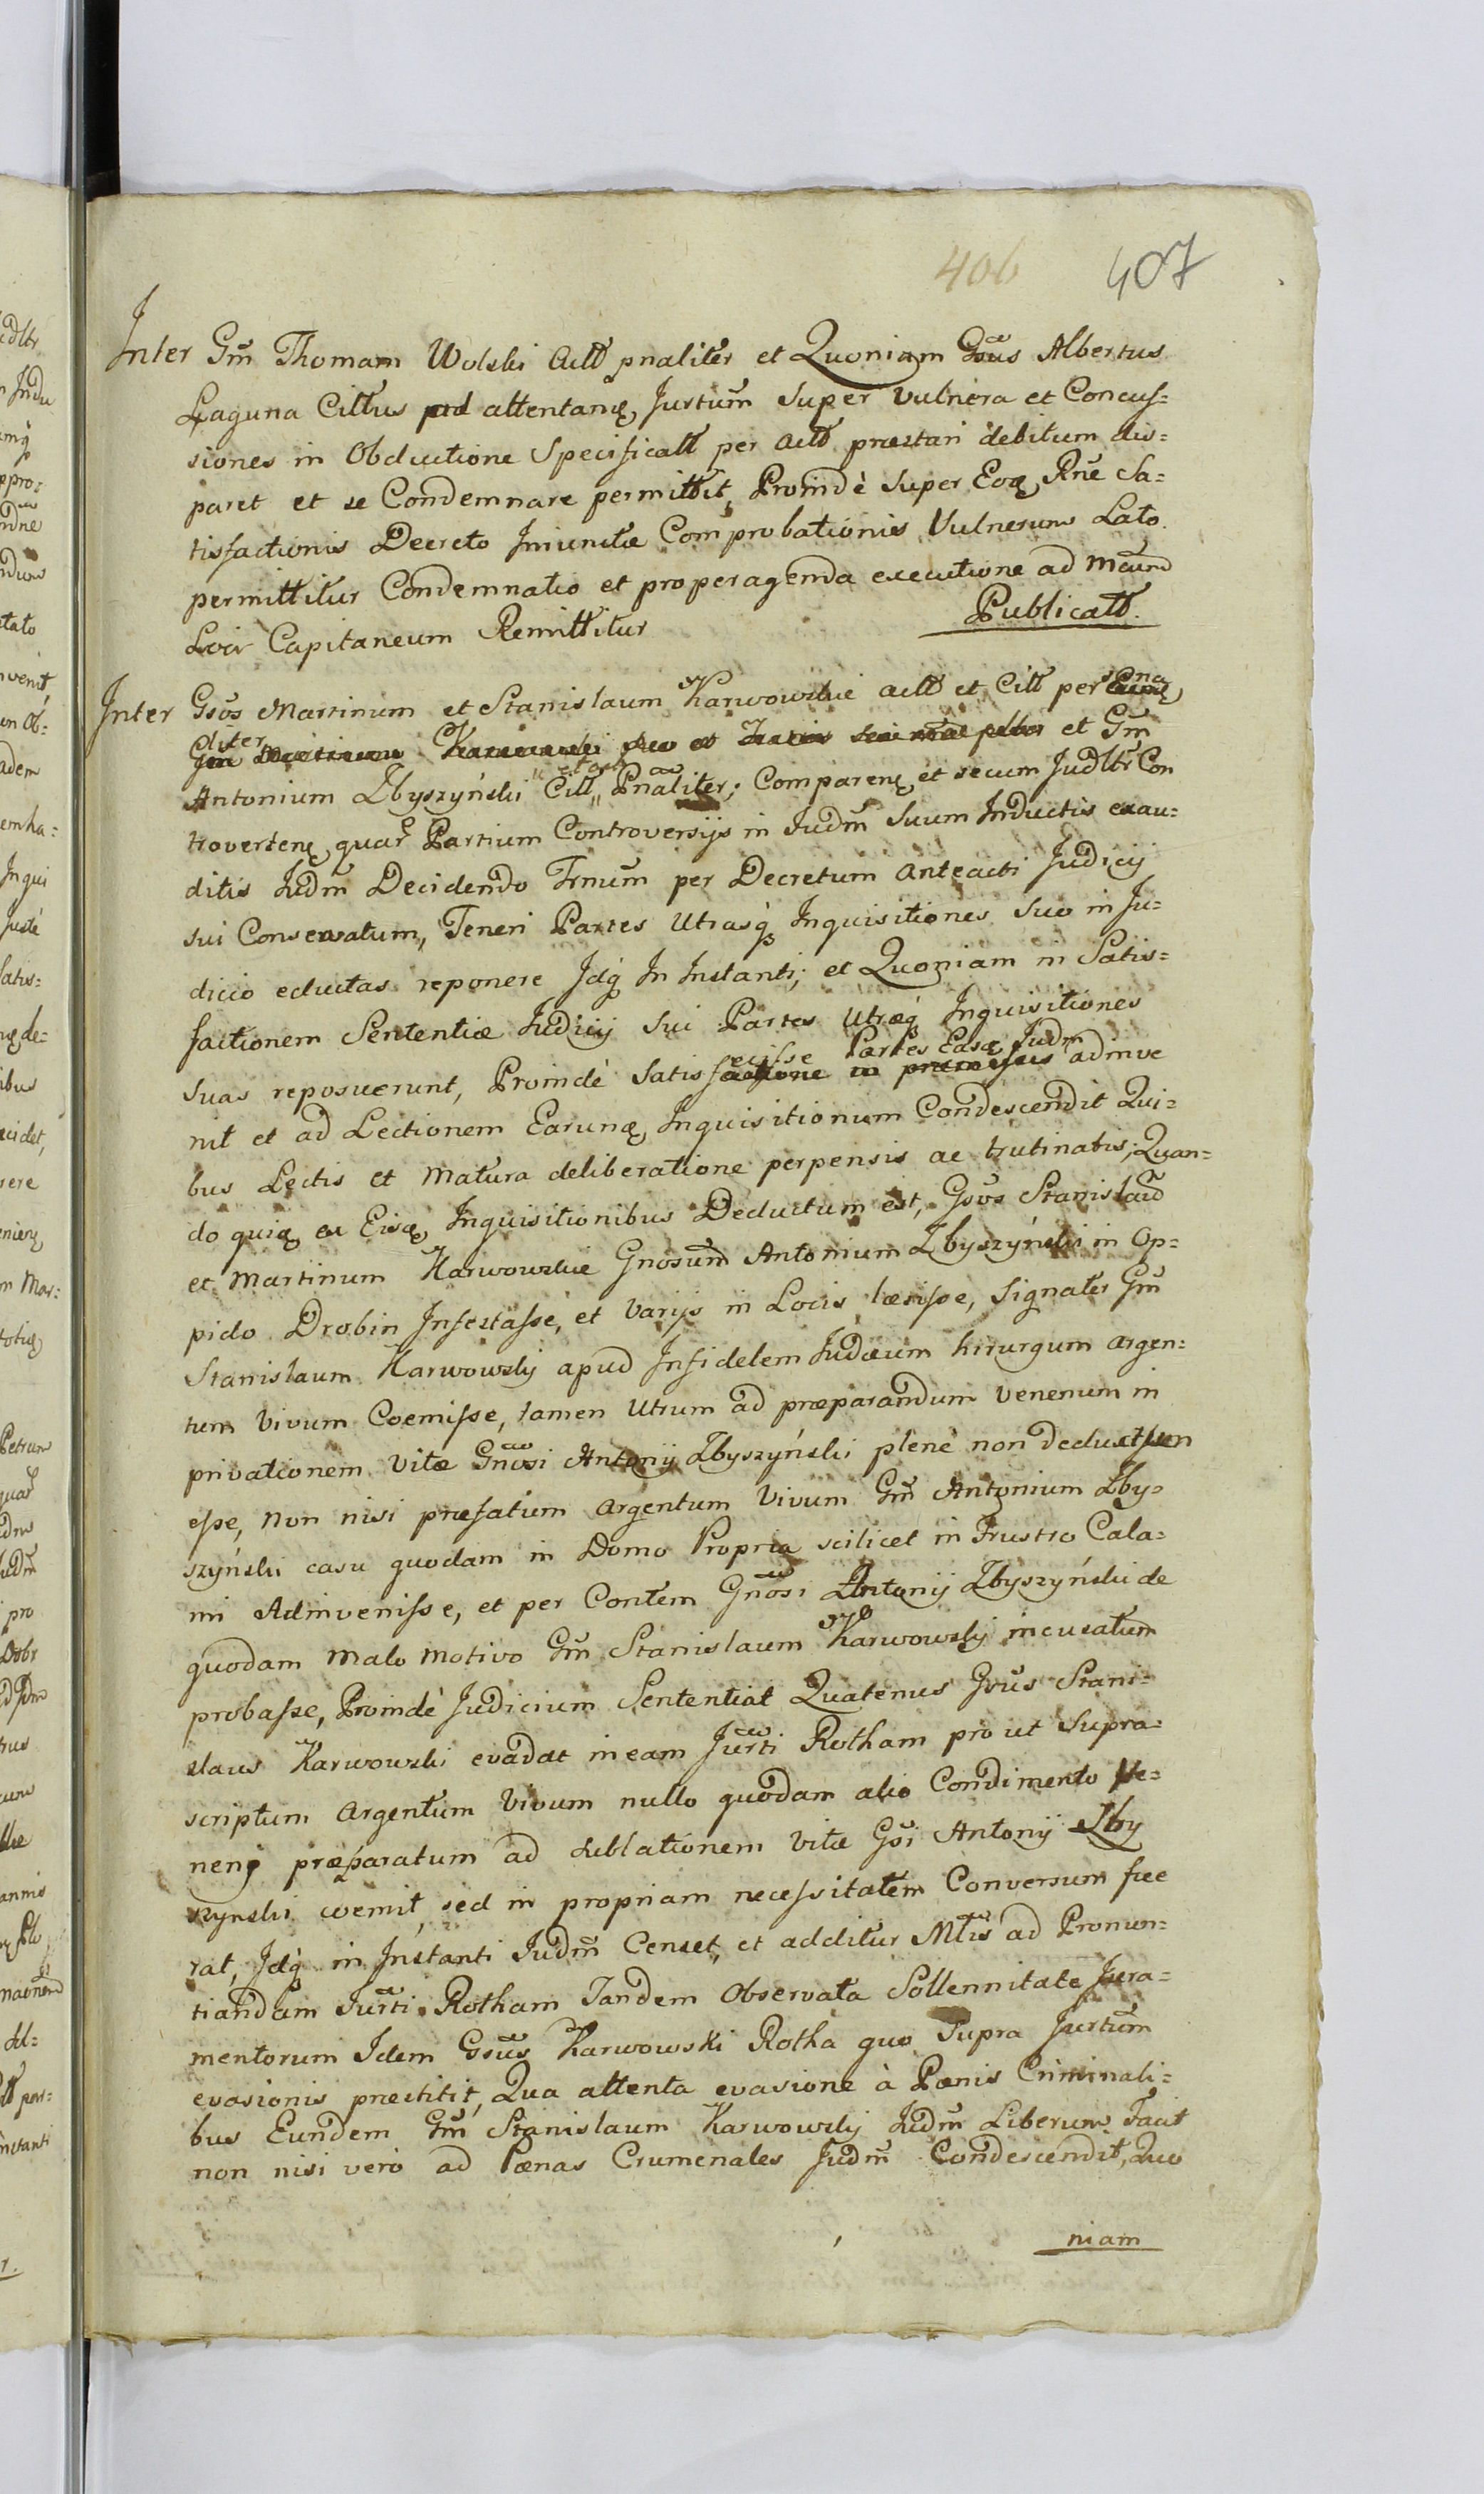 406 407
Inter Gm̃ Thomam Wolski Actt pnaliter et Quoniam Gsũs Albertus
Laguna Cittus ad attentanę Jurtum̃ Super vulnera et Concus=
siones in Obductione Specificatt per Actt præstari debitum dis=
paret et se Condemnare permittit, Proindè Super Eoq Rne Sa=
tisfactionis Decreto Iniunctæ Comprobationis Vulnerum Lato
permittitur Condemnatio et pro peragenda executione ad Mcum̃
Loci Capitaneum Remittitur Publicatt.
Inter Gsõs Martinum et Stanislaum Karwowskie Actt et Citt per
et Gm̃
Antonium Zbyszyński Citt Pnaliter; Comparenę et secum Judltr Con
trovertenę quar̃ Partium Controversijs in Judm̃ Suum Inductis exau=
ditis Judm̃ Decidendo Trnum̃ per Decretum anteacti Judicij
sui Conservatum, Teneri Partes Utrasq Inquisitiones Suo in Ju=
dicio eductas reponere Idq In Instanti; et Quoniam in Satis=
factionem Sententiæ Judicij Sui Partes Utræq Inquisitiones
ecisse Partes Easq Judm̃
suas reposuerunt, Proindè Satisf adinve
nit et ad Lectionem Earunq Inquisitionum Condescendit Qui=
bus Lectis et Matura deliberatione perpensis ac trutinatis; Quan=
do quiq ex Eisq Inquisitionibus Deductum est, Gsõs Stanislaũ
et Martinum Karwowskie Gnosum̃ Antonium Zbyszyński in Op=
pido Drobin Infestasse, et Varijs in Locis læsisse, Signater Gm̃
Stanislaum Karwowskj apud Infidelem Judæum hirurgum argen=
tum vivum Coemisse, tamen Utrum ad præparandum venenum in
privationem vitæ Gnosi Antonij Zbyszyński plenè non deductum
esse, non nisi præfatum Argentum Vivum Gm̃ Antonium Zby=
szyński casu quodam in Domo Propria scilicet in Frustro Cala=
mi Adinvenisse, et per Contem Gnosi Antonij Zbyszyński de
quodam malo motivo Gm̃ Stanislaum Karwowskj incusatum
probasse, Proindè Judicium Sententiat Quatenus Gsũs Stani=
slaus Karwowski evadat in eam Jurti Rotham pro ut Supra=
scriptum Argentum Vivum nullo quodam alio Condimento Ve=
neni præparatum ad sublationem vitæ Gsĩ Antonij Zby
szynski coemit, sed in propriam necessitatem Conversum fue
rat, Idq in Instanti Judm̃ Censet, et additur Mtis̃ ad Pronun=
tiandam Jurti Rotham Tandem Observata Sollennitate Jura=
mentorum Idem Gsũs Karwowski Rotha quo Supra Jurtum̃
evasionis præstitit, Qua attenta evasione à Pænis Criminali=
bus Eundem Gm̃ Stanislaum Karwowskj Judm̃ Liberum Facit
non nisi verò ad Pænas Crumenales Judm̃ Condescendit, Quo
niam